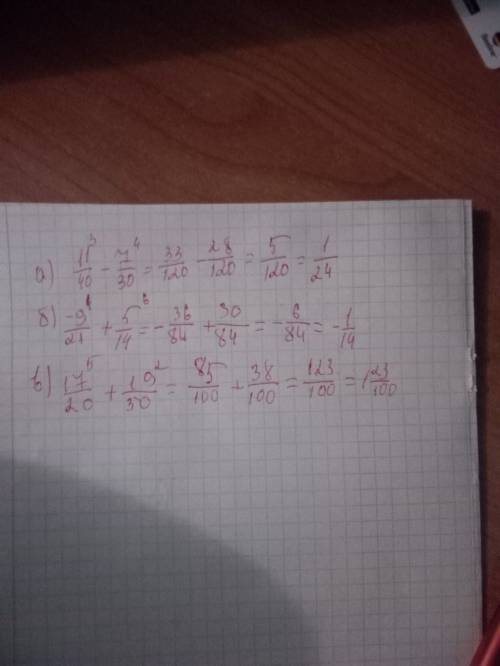 а) 11³/40 - 7⁴/30 = 33/120 - 28/120 = 5/120 = 1/24
б) -9⁴/21 + 5⁶/14 = -36/84 + 30/84 = -6/84 = -1/14
в) 17⁵/20 + 19²/50 = 85/100 + 38/100 = 123/100 = 1 23/100